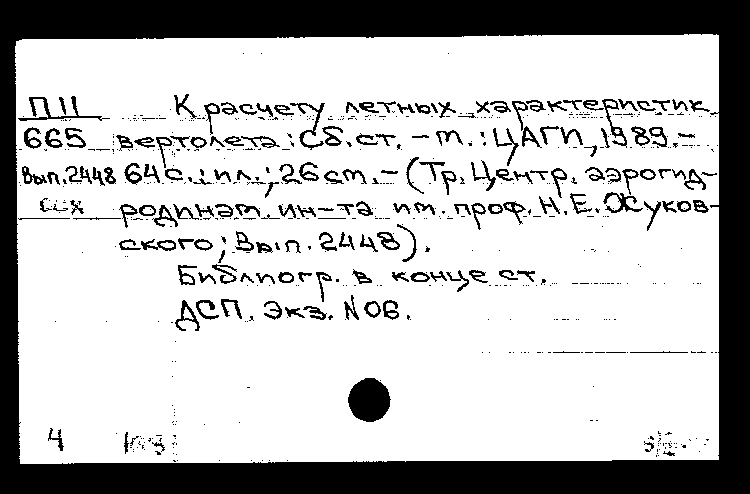 П 11 К расчету летных характеристик
665 вертолета : Сб. ст. – М. : ЦАГИ, 1989. –
Вып. 2448 64 с. : ил. ; 26 см. – (Тр. Центр. аэрогид-
родинам. ин-та им. проф. Н. Е. Жуков-
ского ; Вып. 2448).
Библиогр. в конце ст.
ДСП. Экз. N 06.
4